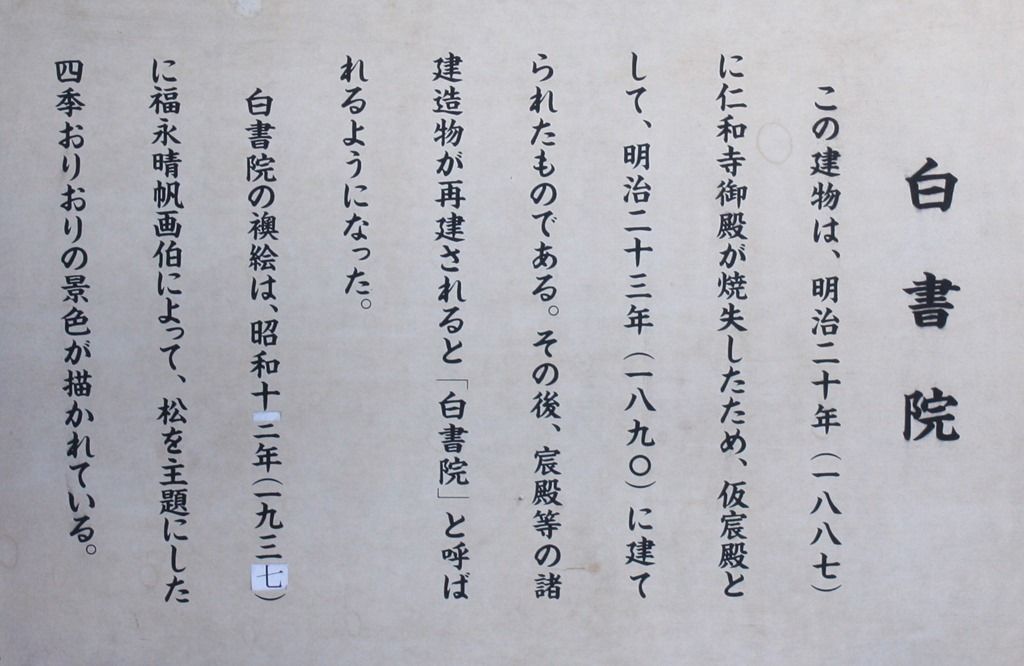 白書院
この建物は、明治二十年（一八八七）
に仁和寺御殿が焼失したため、仮宸殿と
して、明治二十三年（一八九〇）に建て
られたものである。その後、宸殿等の諸
建造物が再建されると「白書院」と呼ば
れるようになった。
白書院の襖絵は、昭和十二年（一九三七）
に福永晴帆画伯によって、松を主題にした
四季おりおりの景色が描かれている。